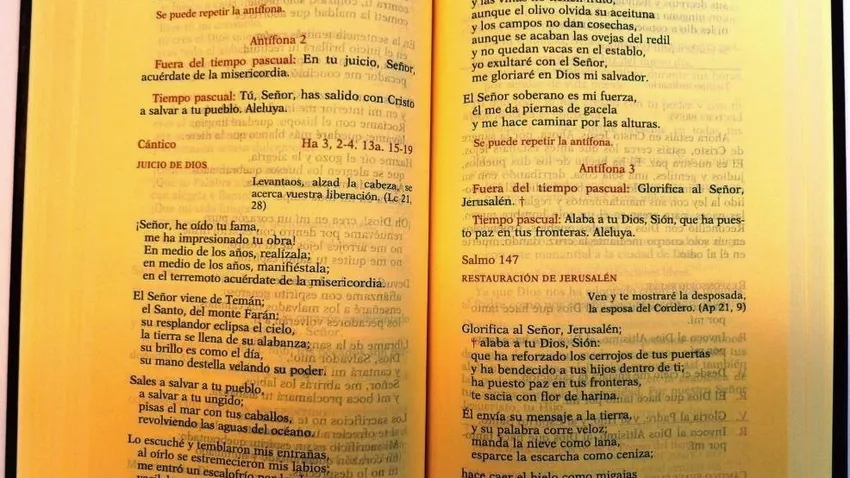 Se puede repetir la antífona.
Antífona 2
Fuera del tiempo pascual: En tu juicio, Señor,
acuérdate de la misericordia.
Tiempo pascual: Tú, Señor, has salido con Cristo
a salvar a tu pueblo. Aleluya.
Cántico Ha 3, 2-4. 13a. 15-19
JUICIO DE DIOS
Levantaos, alzad la cabeza, se
acerca vuestra liberación. (Lc 21,
28)
¡Señor, he oído tu fama,
me ha impresionado tu obra!
En medio de los años, realízala;
en medio de los años, manifiéstala;
en el terremoto acuérdate de la misericordia.
El Señor viene de Temán;
el Santo, del monte Farán:
su resplandor eclipsa el cielo,
la tierra se llena de su alabanza;
su brillo es como el día,
su mano destella velando su poder.
Sales a salvar a tu pueblo,
a salvar a tu ungido;
pisas el mar con tus caballos,
revolviendo las aguas del océano.
Lo escuché y temblaron mis entrañas,
al oírlo se estremecieron mis labios;
me entró un escalofrío por los
y las viñas no tienen fruto,
aunque el olivo olvida su aceituna
y los campos no dan cosechas,
aunque se acaban las ovejas del redil
y no quedan vacas en el establo,
yo exultaré con el Señor,
me gloriaré en Dios mi salvador.
El Señor soberano es mi fuerza,
él me da piernas de gacela
y me hace caminar por las alturas.
Se puede repetir la antífona.
Antífona 3
Fuera del tiempo pascual: Glorifica al Señor,
Jerusalén. †
Tiempo pascual: Alaba a tu Dios, Sión, que ha pues-
to paz en tus fronteras. Aleluya.
Salmo 147
RESTAURACIÓN DE JERUSALÉN
Ven y te mostraré la desposada,
la esposa del Cordero. (Ap 21, 9)
Glorifica al Señor, Jerusalén;
† alaba a tu Dios, Sión:
que ha reforzado los cerrojos de tus puertas
y ha bendecido a tus hijos dentro de ti;
ha puesto paz en tus fronteras,
te sacia con flor de harina.
Él envía su mensaje a la tierra,
y su palabra corre veloz;
manda la nieve como lana,
esparce la escarcha como ceniza;
hace caer el hielo como migajas